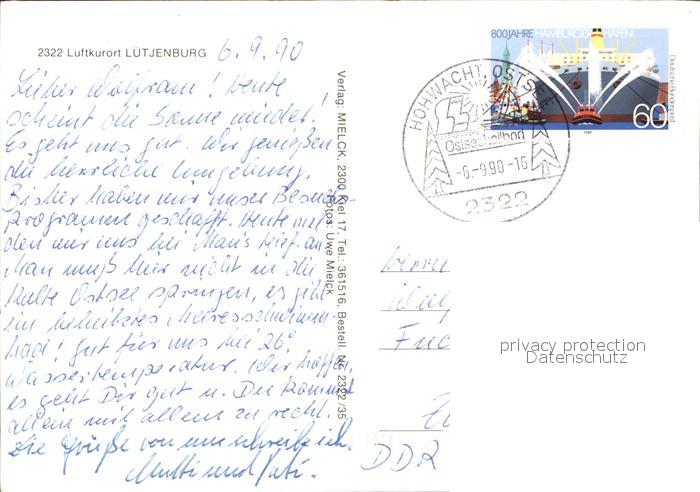 2322 Luftkurort LÜTJENBURG 6.9.90
Lieber Wolfram! Heute
scheint die Sonne wieder!
Es geht uns gut. Wir genießen
die herrliche Umgebung.
Bisher haben wir unser Besuchs-
programm geschafft. Heute mel-
den wir uns bei an
Man muß hier nicht in die
kalte Ostsee springen, es gibt
ein beheiztes Meeresschwimm-
bad! gut für uns bei 26°
Wassertemperatur. Wir hoffen,
es geht Dir gut u. Du kommst
allein mit allem zu recht.
Die Grüße von uns
Mutti und Vati.
Verlag: MIELCK, 2300 Kiel 17, Tel.: 361516, Bestell. Nr. 2322/35
Fotos: Uwe Mielck
800 JAHRE HAMBURGER HAFEN
Deutsche Bundespost
60
1989
HOHWACHT, OSTSEE
Ostseeheilbad
-6.-9.90-16
2322
DDR
privacy protection
Datenschutz